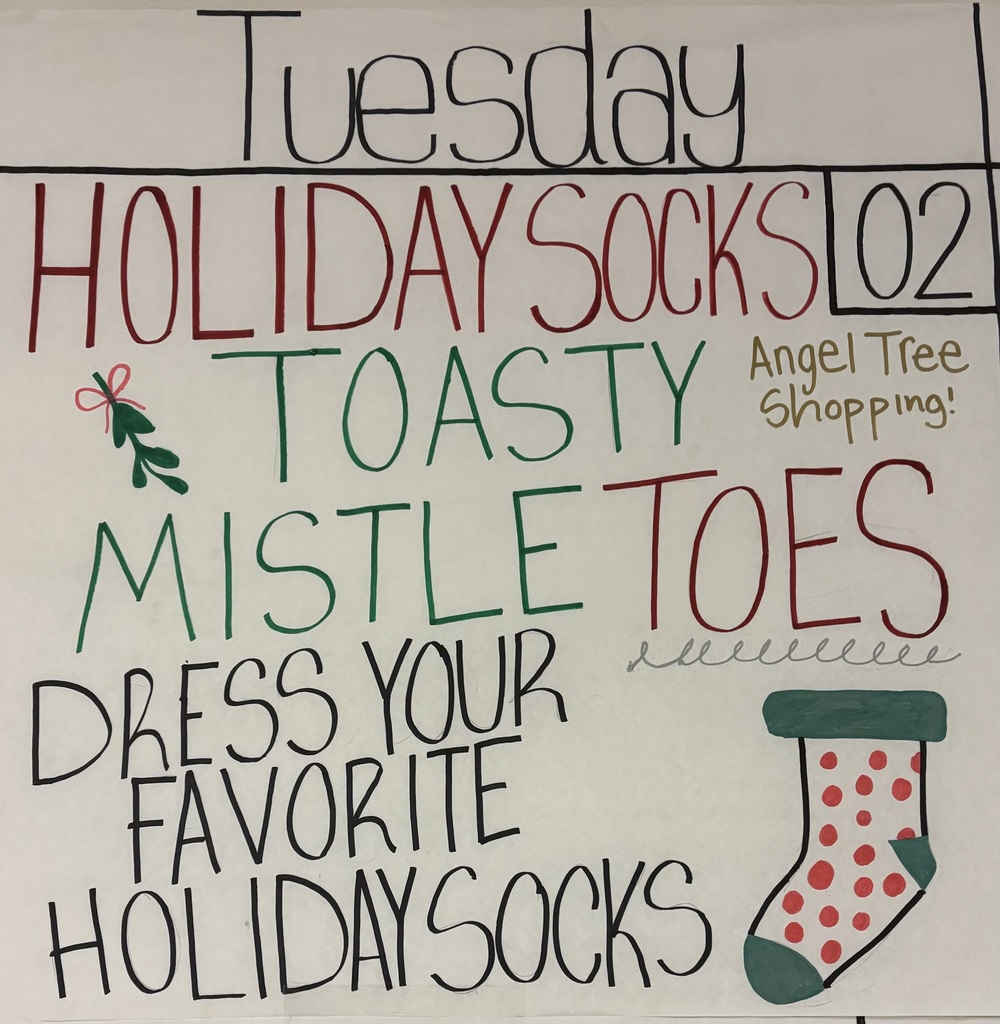 Tuesday
HOLIDAY SOCKS
02
TOASTY
Angel Tree
Shopping!
MISTLETOES
DRESS YOUR
FAVORITE
HOLIDAY SOCKS